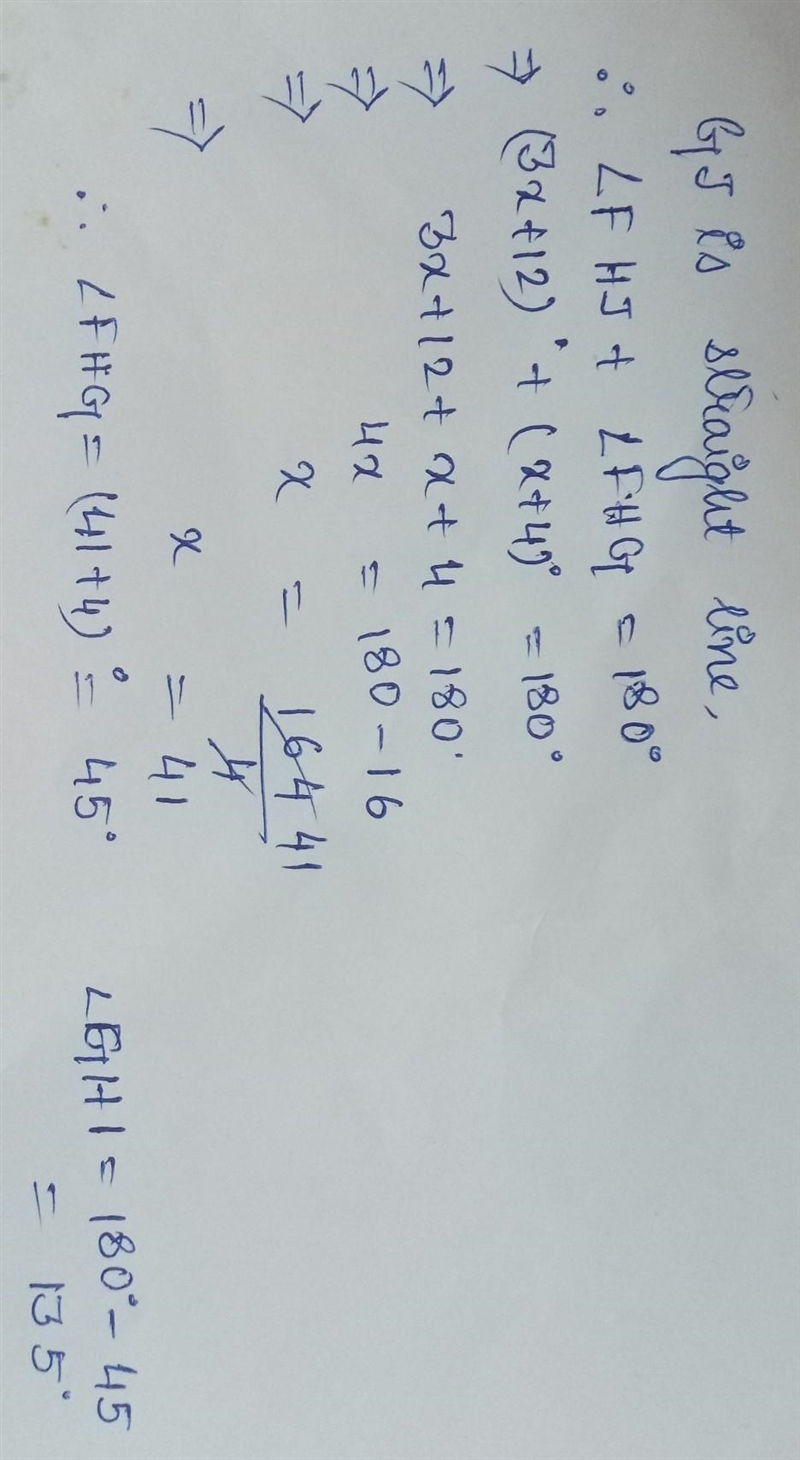 GJ is straight line,
∴ ∠FHJ + ∠FHG = 180°
⇒ (3x+12)° + (x+4)° = 180°
⇒ 3x+12+x+4 = 180°
⇒ 4x = 180-16
⇒ x = 164/4 41
⇒ x = 41
∴ ∠FHG = (41+4)° = 45°
∠GHI = 180° - 45
= 135°